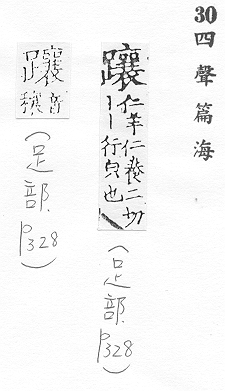 30 四聲篇海
躟
仁羊仁養二切
丨丨行皃也
(足部. P328)
躟
音
穰
(足部. P328)